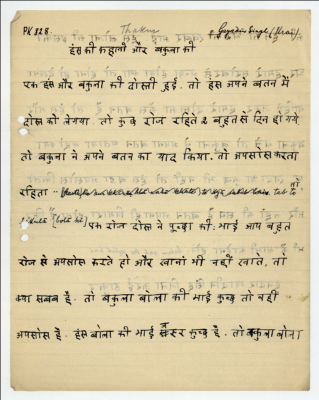 PK 128. Thakur Gurdin Singh
हंस की कहानी और बकुला की
एक हंस और बकुला की दोस्ती हुई. तो हंस अपने वतन में
दोस्त को लेगया. तो कुछ रोज रहिते २ बहुत से दिन हो गये
तो बकुला ने अपने वतन का याद किया. तो अपसोस करता
रहिता
एक रोज दोस्त ने पूच्छा की भाई आप बहुत
रोज से अपसोस करते हो और खाना भी नहीं खाते. तो
क्या सबब है. तो बकुला बोला की भाई कुछ तो नहीं
अपसोस है. हंस बोला की भाई कुछ है. तो बकुला बोला